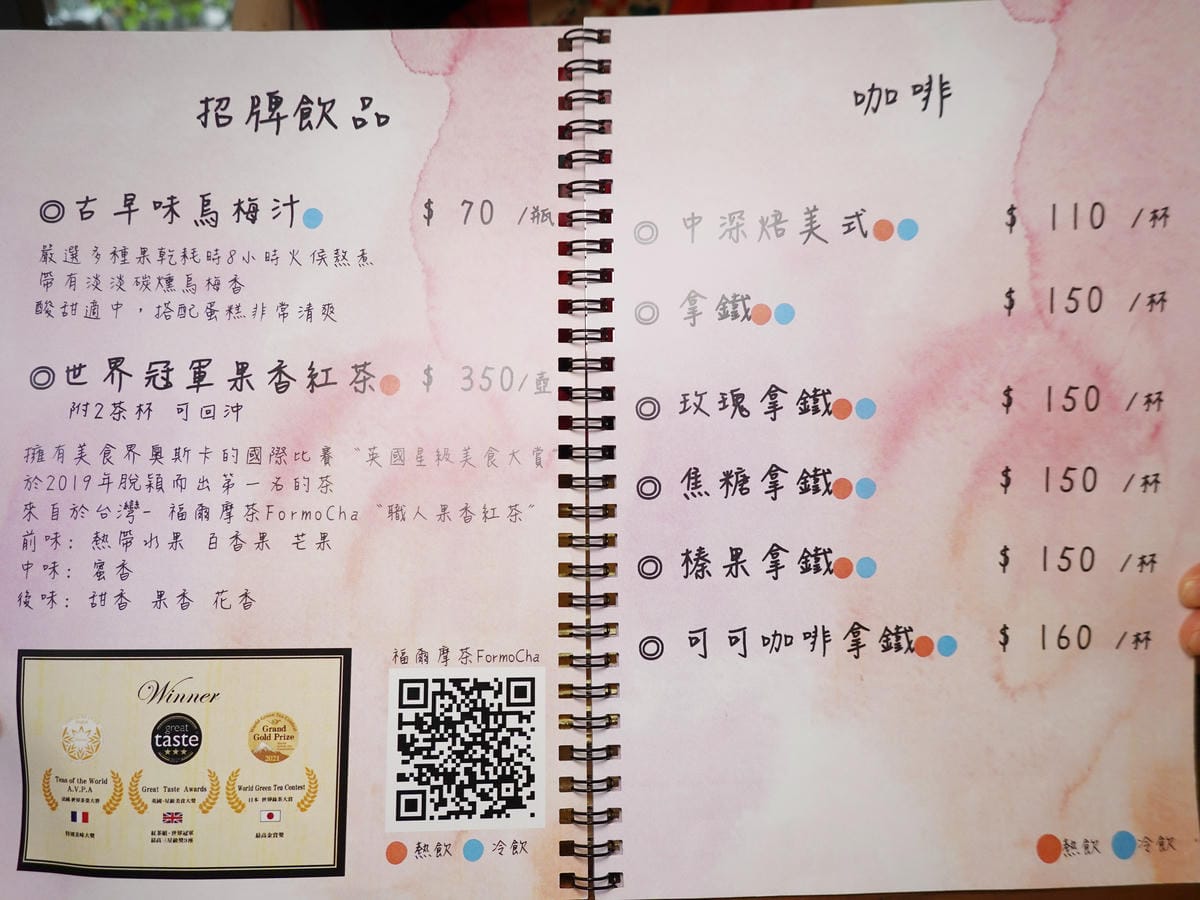 招牌飲品
◎古早味烏梅汁 $ 70 /瓶
嚴選多種果乾耗時8小時火侯熬煮
帶有淡淡碳燻烏梅香
酸甜適中，搭配蛋糕非常清爽
◎世界冠軍果香紅茶 $ 350/壺
附2茶杯 可回沖
擁有美食界奧斯卡的國際比賽 “英國星級美食大賞”
於2019年脫穎而出第一名的茶
來自於台灣- 福爾摩茶FormoCha “職人果香紅茶”
前味: 熱帶水果 百香果 芒果
中味: 蜜香
後味: 甜香 果香 花香
Winner
great taste
World Green Tea Contest
Grand Gold Prize
2021
Teas of the World
A.V.P.A
法國·世界茶葉大賽
特別美味大獎
Great Taste Awards
英國·星級美食大獎
紅茶組·世界冠軍
最高三星級獎3座
World Green Tea Contest
日本 世界綠茶大賞
最高金賞獎
福爾摩茶FormoCha
熱飲 冷飲
咖啡
◎ 中深焙美式 $ 110 /杯
◎ 拿鐵 $ 150 /杯
◎ 玫瑰拿鐵 $ 150 /杯
◎ 焦糖拿鐵 $ 150 /杯
◎ 榛果拿鐵 $ 150 /杯
◎ 可可咖啡拿鐵 $ 160 /杯
熱飲 冷飲